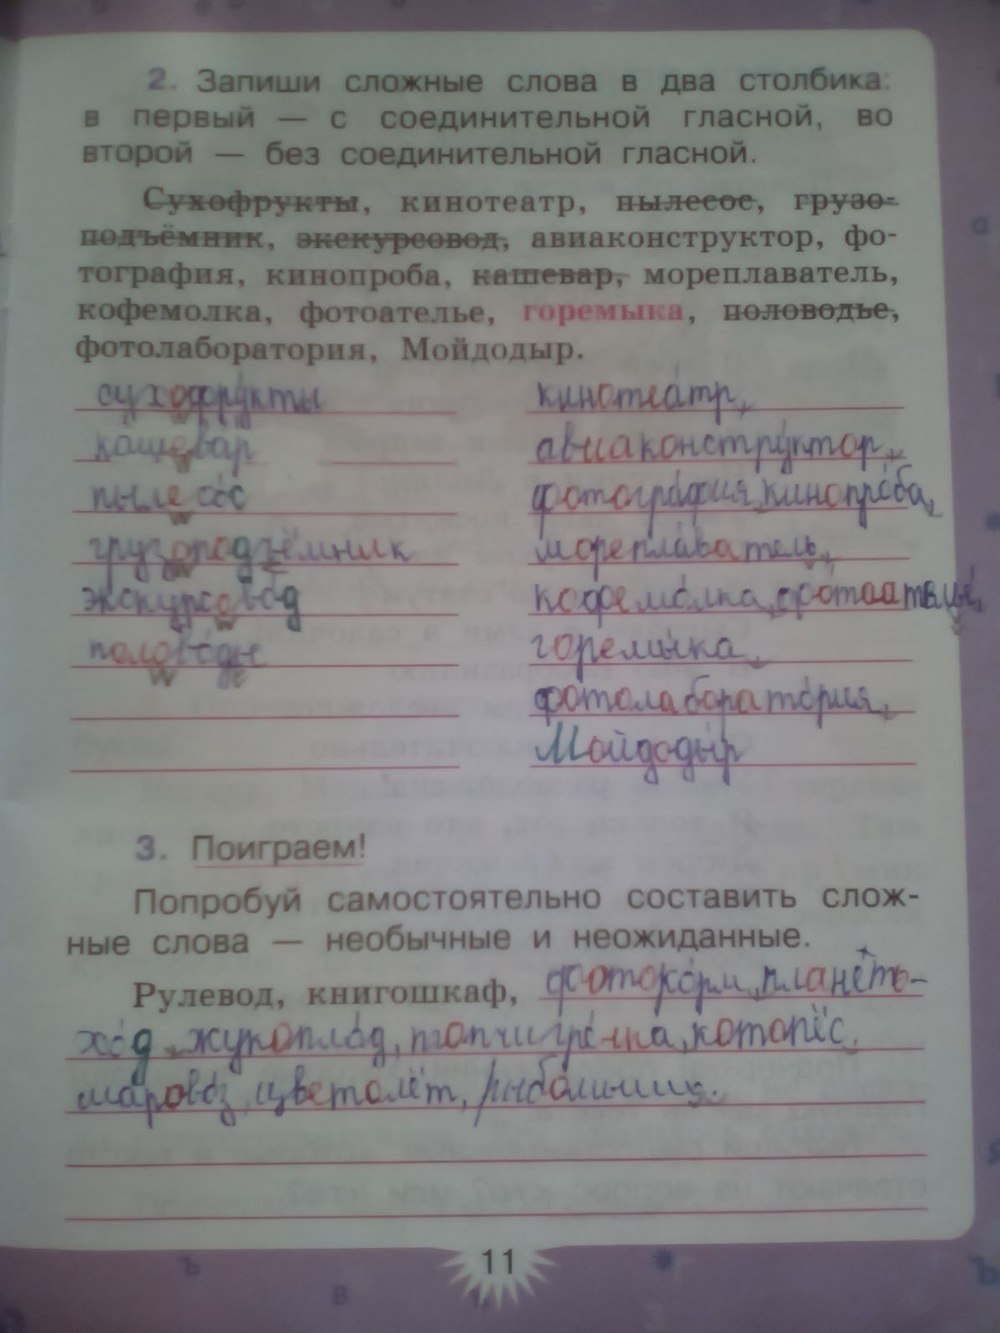 2. Запиши сложные слова в два столбика:
в первый — с соединительной гласной, во
второй — без соединительной гласной.
Сухофрукты, кинотеатр, пылесос, грузо-
подъёмник, экскурсовод, авиаконструктор, фо-
тография, кинопроба, кашевар, мореплаватель,
кофемолка, фотоателье, горемыка, половодье,
фотолаборатория, Мойдодыр.
сухофрукты
кашевар
пылесос
грузоподъёмник
экскурсовод
половодье
кинотеатр,
авиаконструктор,
фотография, кинопроба,
мореплаватель,
кофемолка, фотоателье,
горемыка,
фотолаборатория,
Мойдодыр
3. Поиграем!
Попробуй самостоятельно составить слож-
ные слова — необычные и неожиданные.
Рулевод, книгошкаф, фотокорм, планеть-
ход, жукоплод, котопёс,
шаровоз, цветолёт,
11